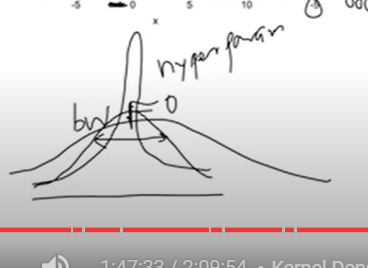 -5 0 5 10
x
hyper param
bw 0
1:47:33 / 2:09:54 • Kernel Den